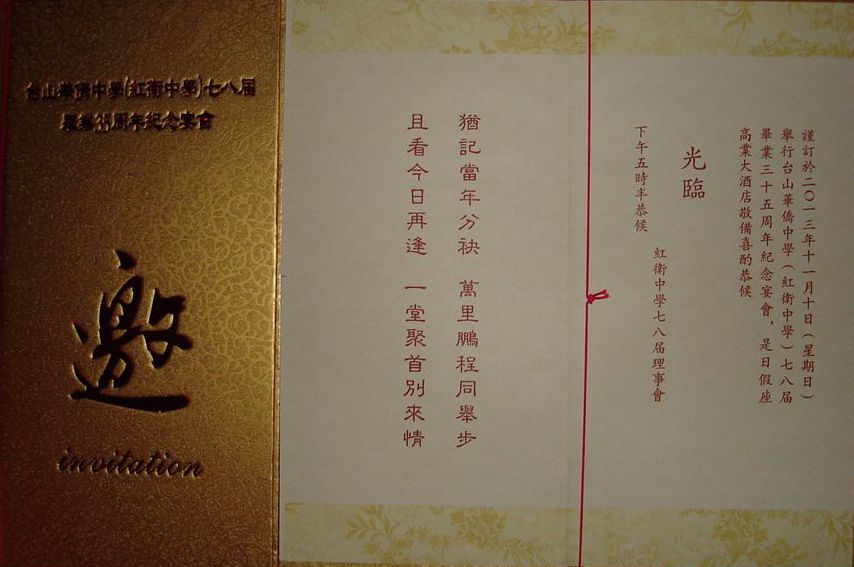 台山華僑中學(紅衛中學)七八屆
畢業35周年紀念宴會
邀
invitation
猶記當年分袂　萬里鵬程同舉步
且看今日再逢　一堂聚首別來情
謹訂於二〇一三年十一月十日(星期日)
舉行台山華僑中學(紅衛中學)七八屆
畢業三十五周年紀念宴會，是日假座
高業大酒店敬備喜酌恭候
光臨
紅衛中學七八屆理事會
下午五時半恭候